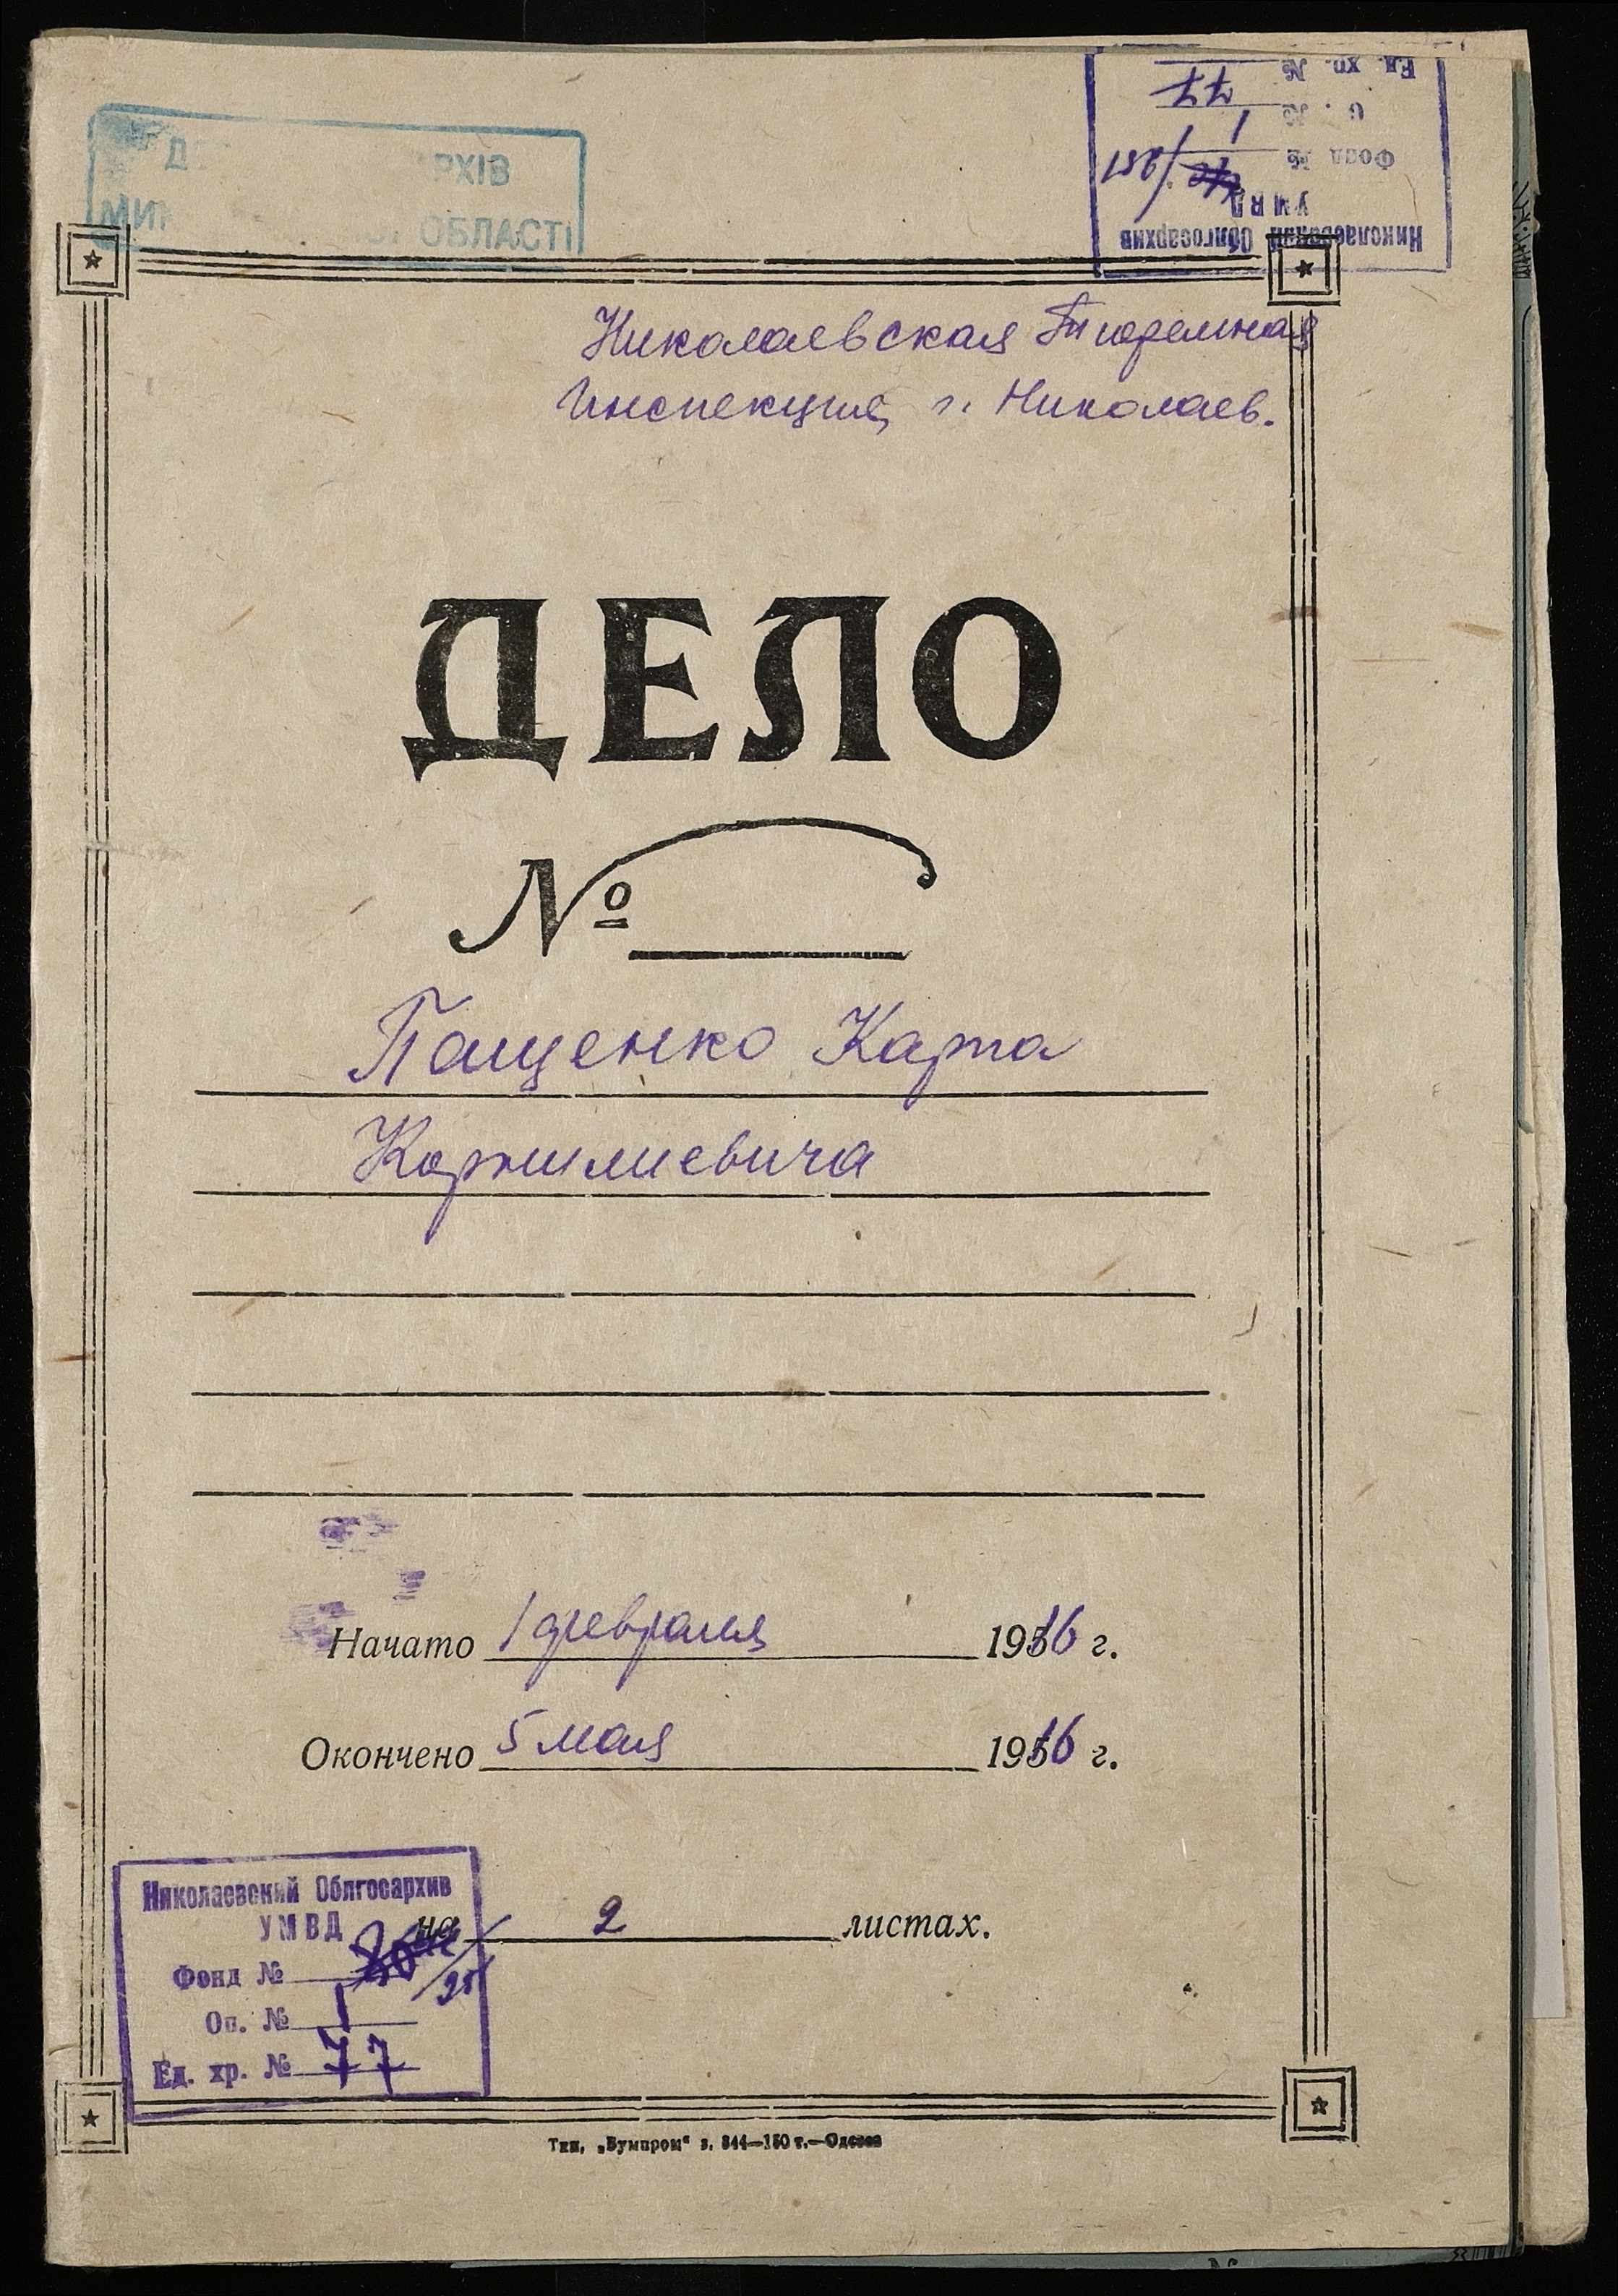 РХІВ
ОБЛАСТІ
Николаевский Облгосархив
УМВД
Фонд №
1
77
Ед. хр. №
Николаевская Тюремная
Инспекция, г. Николаев.
ДЕЛО
№
Пащенко Карпа
Корнилиевича
Начато 1 февраля 1916 г.
Окончено 5 мая 1916 г.
на 2 листах.
Николаевский Облгосархив
УМВД
Фонд №
Оп. № 1
Ед. хр. № 77
Тип. „Бумпром“ з. 844—150 т.—Одесса